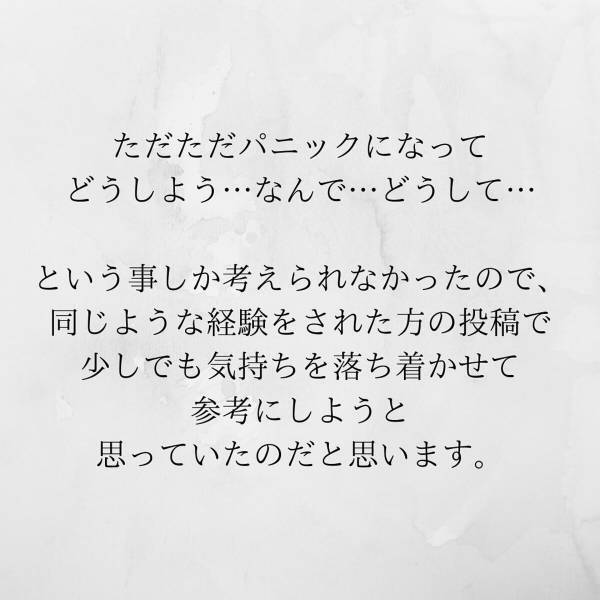 ただただパニックになって
どうしよう…なんで…どうして…
という事しか考えられなかったので、
同じような経験をされた方の投稿で
少しでも気持ちを落ち着かせて
参考にしようと
思っていたのだと思います。